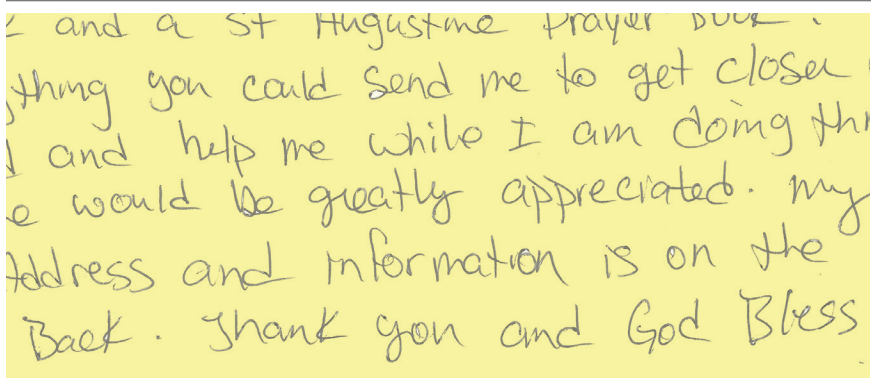 and a St Augustine Prayer Book.
ything you could send me to get closer
and help me while I am doing thi
e would be greatly appreciated. My
Address and information is on the
Back. Thank you and God Bless